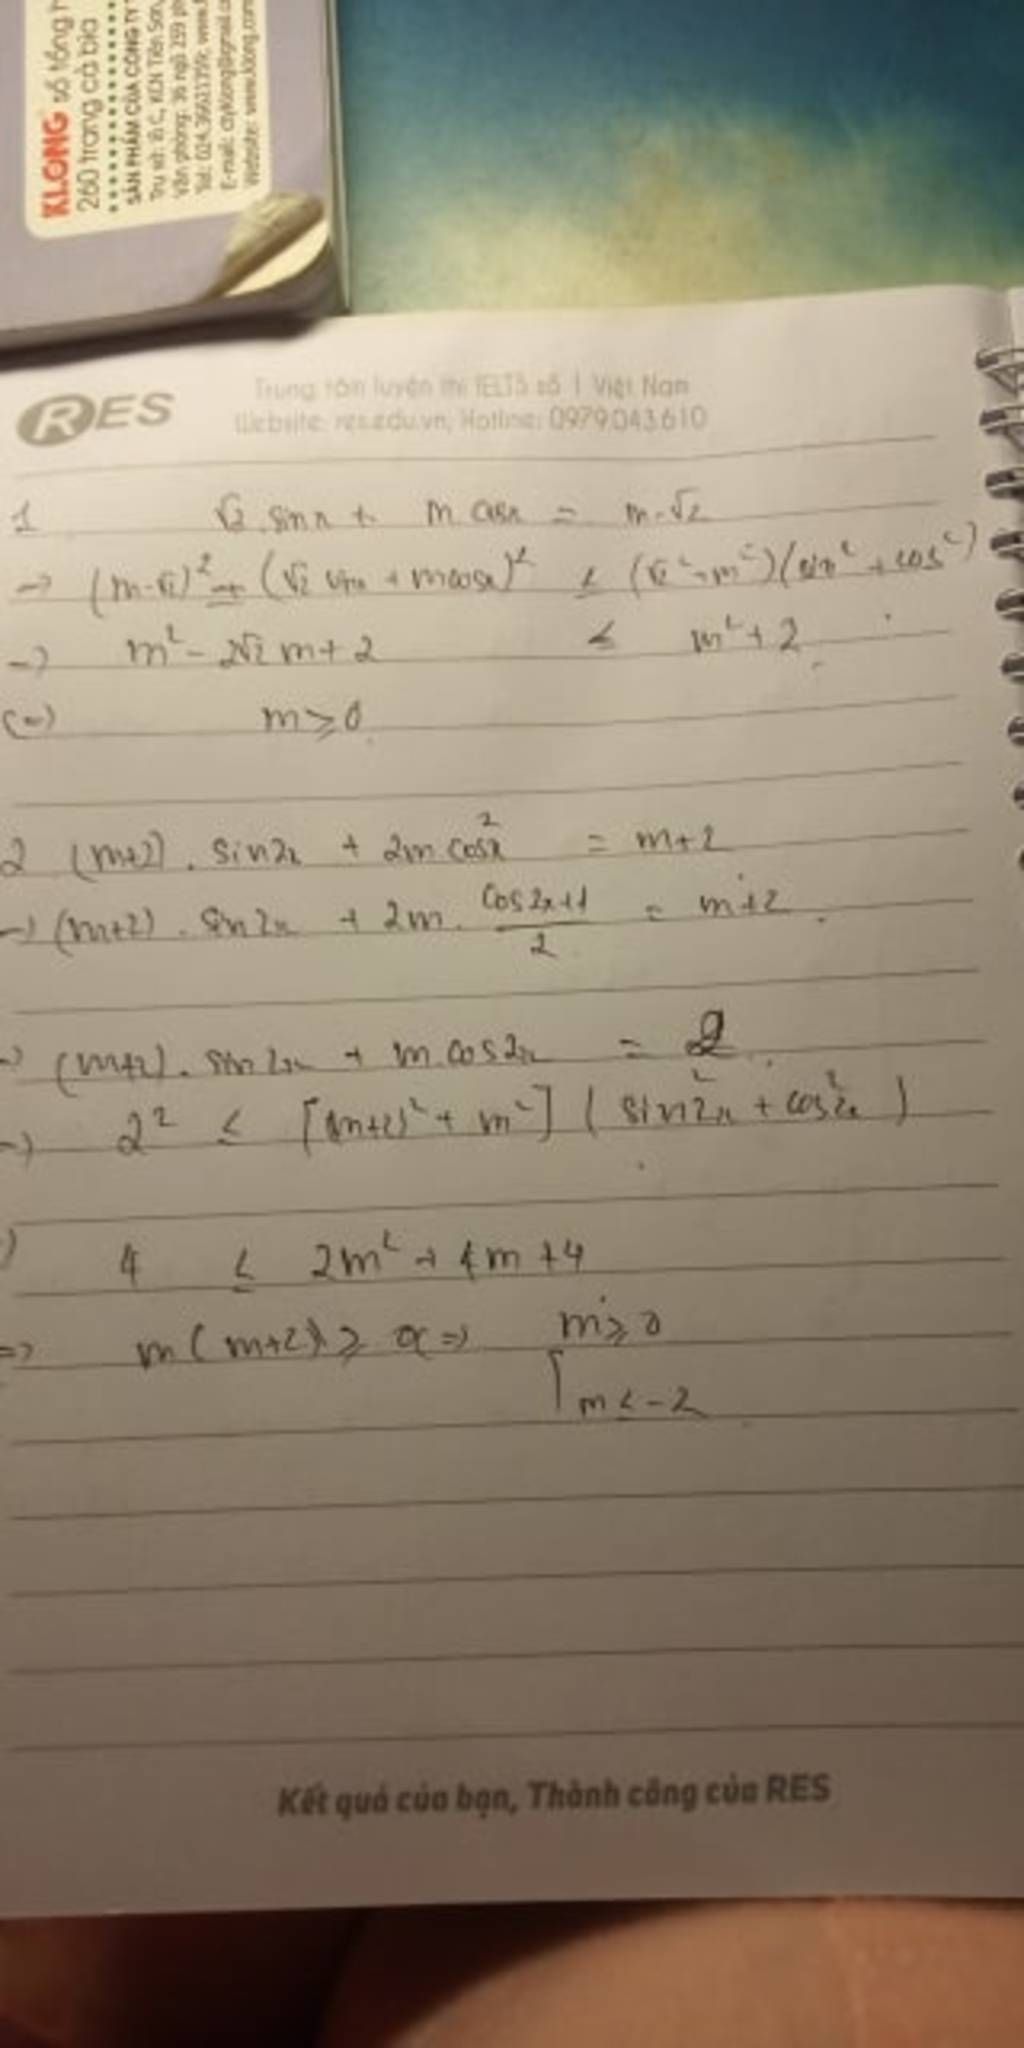 KLONG số tổng h
260 trang cả bìa
SẢN PHẨM CỦA CÔNG TY
RES
Trung tâm luyện thi IELTS số 1 Việt Nam
Website: res.edu.vn; Hotline: 0979.043.610
1 √2 sinx + m cosx = m-√2
=> (m-√2)² = (√2 sinx + mcosx)² ≤ (√2² + m²)(sin² + cos²)
=> m² - 2√2 m + 2 ≤ m² + 2
(=) m ≥ 0
2 (m+2). sin2x + 2m cos²x = m+2
=> (m+2). sin2x + 2m. (cos2x+1)/2 = m+2
=> (m+2). sin2x + m cos2x = 2
=> 2² ≤ [(m+2)² + m²] (sin²2x + cos²2x)
4 ≤ 2m² + 4m + 4
=> m(m+2) ≥ 0 => [ m ≥ 0
m ≤ -2
Kết quả của bạn, Thành công của RES